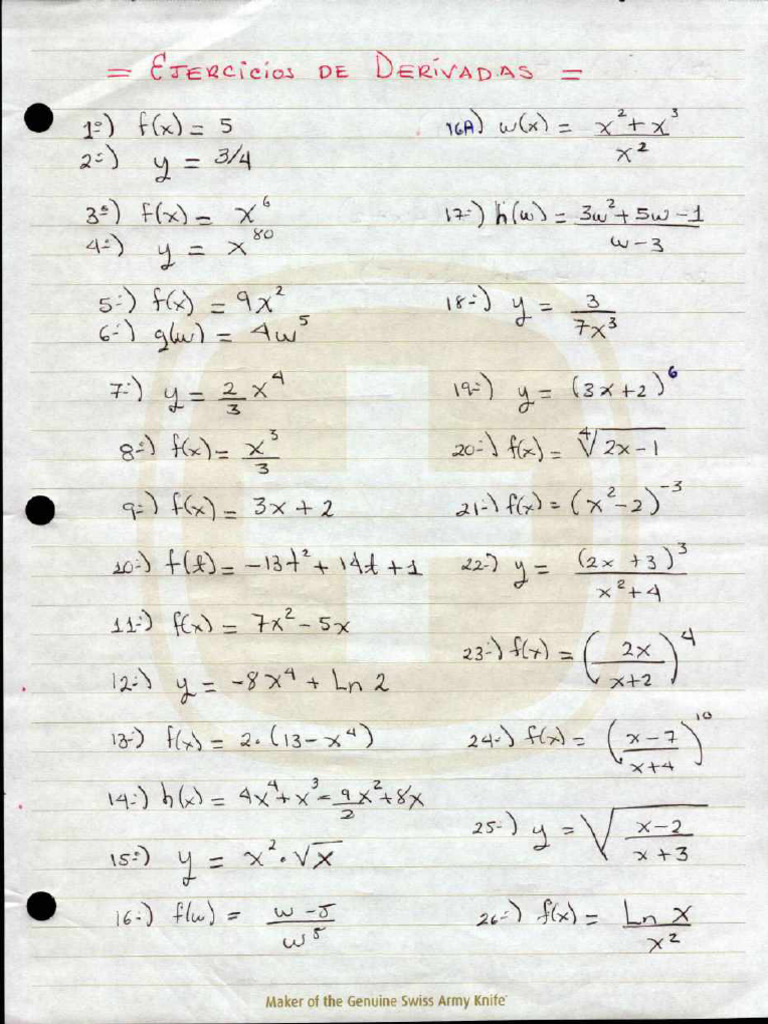 = EJERCICIOS DE DERIVADAS =
1º-) f(x) = 5
2-) y = 3/4
3-) f(x) = x^6
4-) y = x^80
5-) f(x) = 9x^2
6-) g(w) = 4w^5
7-) y = 2/3 x^4
8-) f(x) = x^3/3
9-) f(x) = 3x + 2
10-) f(t) = -13t^2 + 14t + 1
11-) f(x) = 7x^2 - 5x
12-) y = -8x^4 + Ln 2
13-) f(x) = 2·(13 - x^4)
14-) h(x) = 4x^4 + x^3 - 9x^2/2 + 8x
15-) y = x^2·√x
16-) f(w) = (w - 5)/w^5
16A) w(x) = (x^2 + x^3)/x^2
17-) h(w) = (3w^2 + 5w - 1)/(w - 3)
18-) y = 3/(7x^3)
19-) y = (3x + 2)^6
20-) f(x) = ∜(2x - 1)
21-) f(x) = (x^2 - 2)^-3
22-) y = (2x + 3)^3/(x^2 + 4)
23-) f(x) = (2x/(x + 2))^4
24-) f(x) = ((x - 7)/(x + 4))^10
25-) y = √((x - 2)/(x + 3))
26-) f(x) = Ln x/x^2
Maker of the Genuine Swiss Army Knife